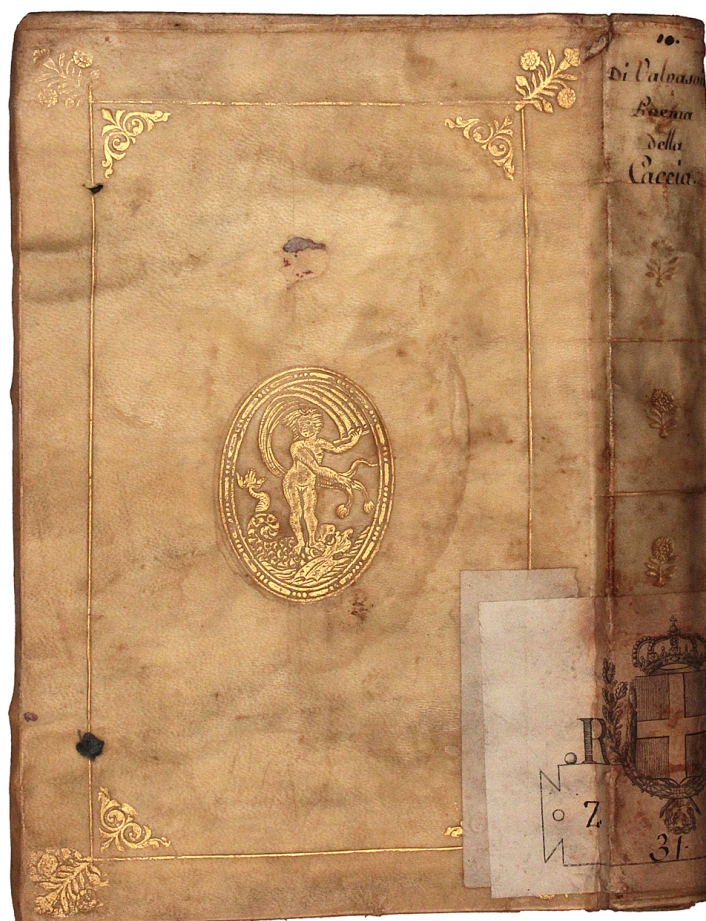 10.
Di Valvason
Poema
della
Caccia.
.R
N
O
N
Z
31